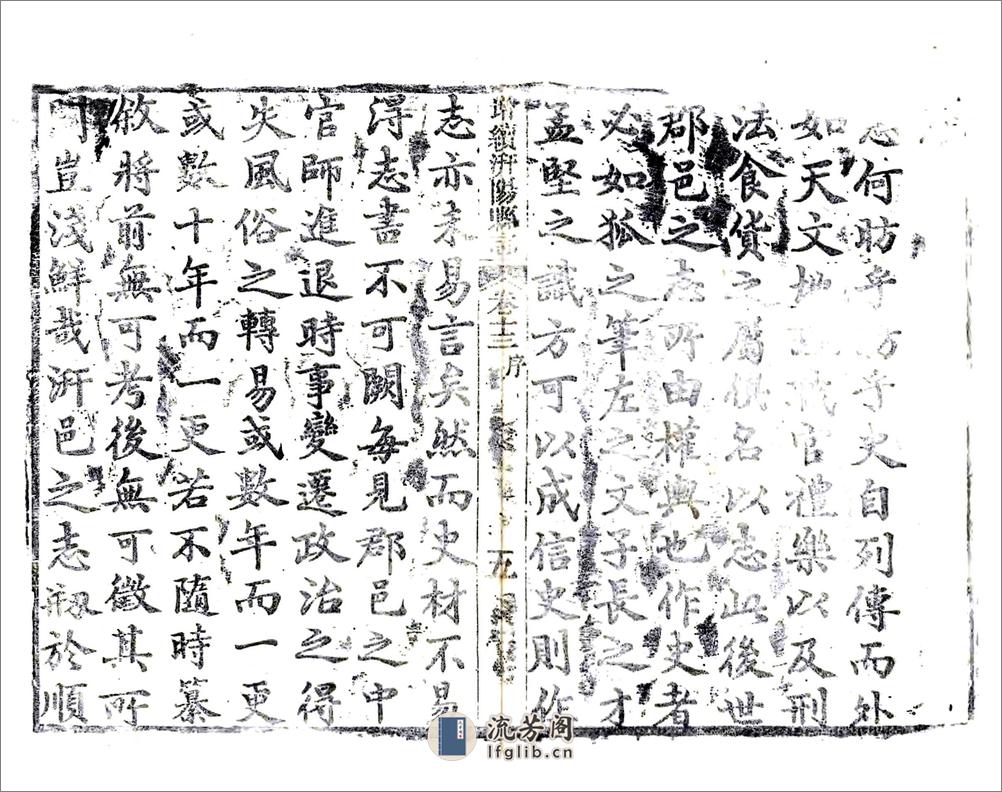 志何昉乎昉乎史自列傳而外
如天文地理職官禮樂以及刑
法食貨之屬俱名以志此後世
郡邑之志所由權輿也作史者
必如狐之筆左之文子長之才
孟堅之識方可以成信史則作
增續汧陽縣志 卷十三 序
志亦未易言矣然而史材不易
得志書不可闕每見郡邑之中
官師進退時事變遷政治之得
失風俗之轉易或數年而一更
或數十年而一更若不隨時纂
敘將前無可考後無可徵其可
豈淺鮮哉汧邑之志剏於順
流芳阁
lfglib.cn